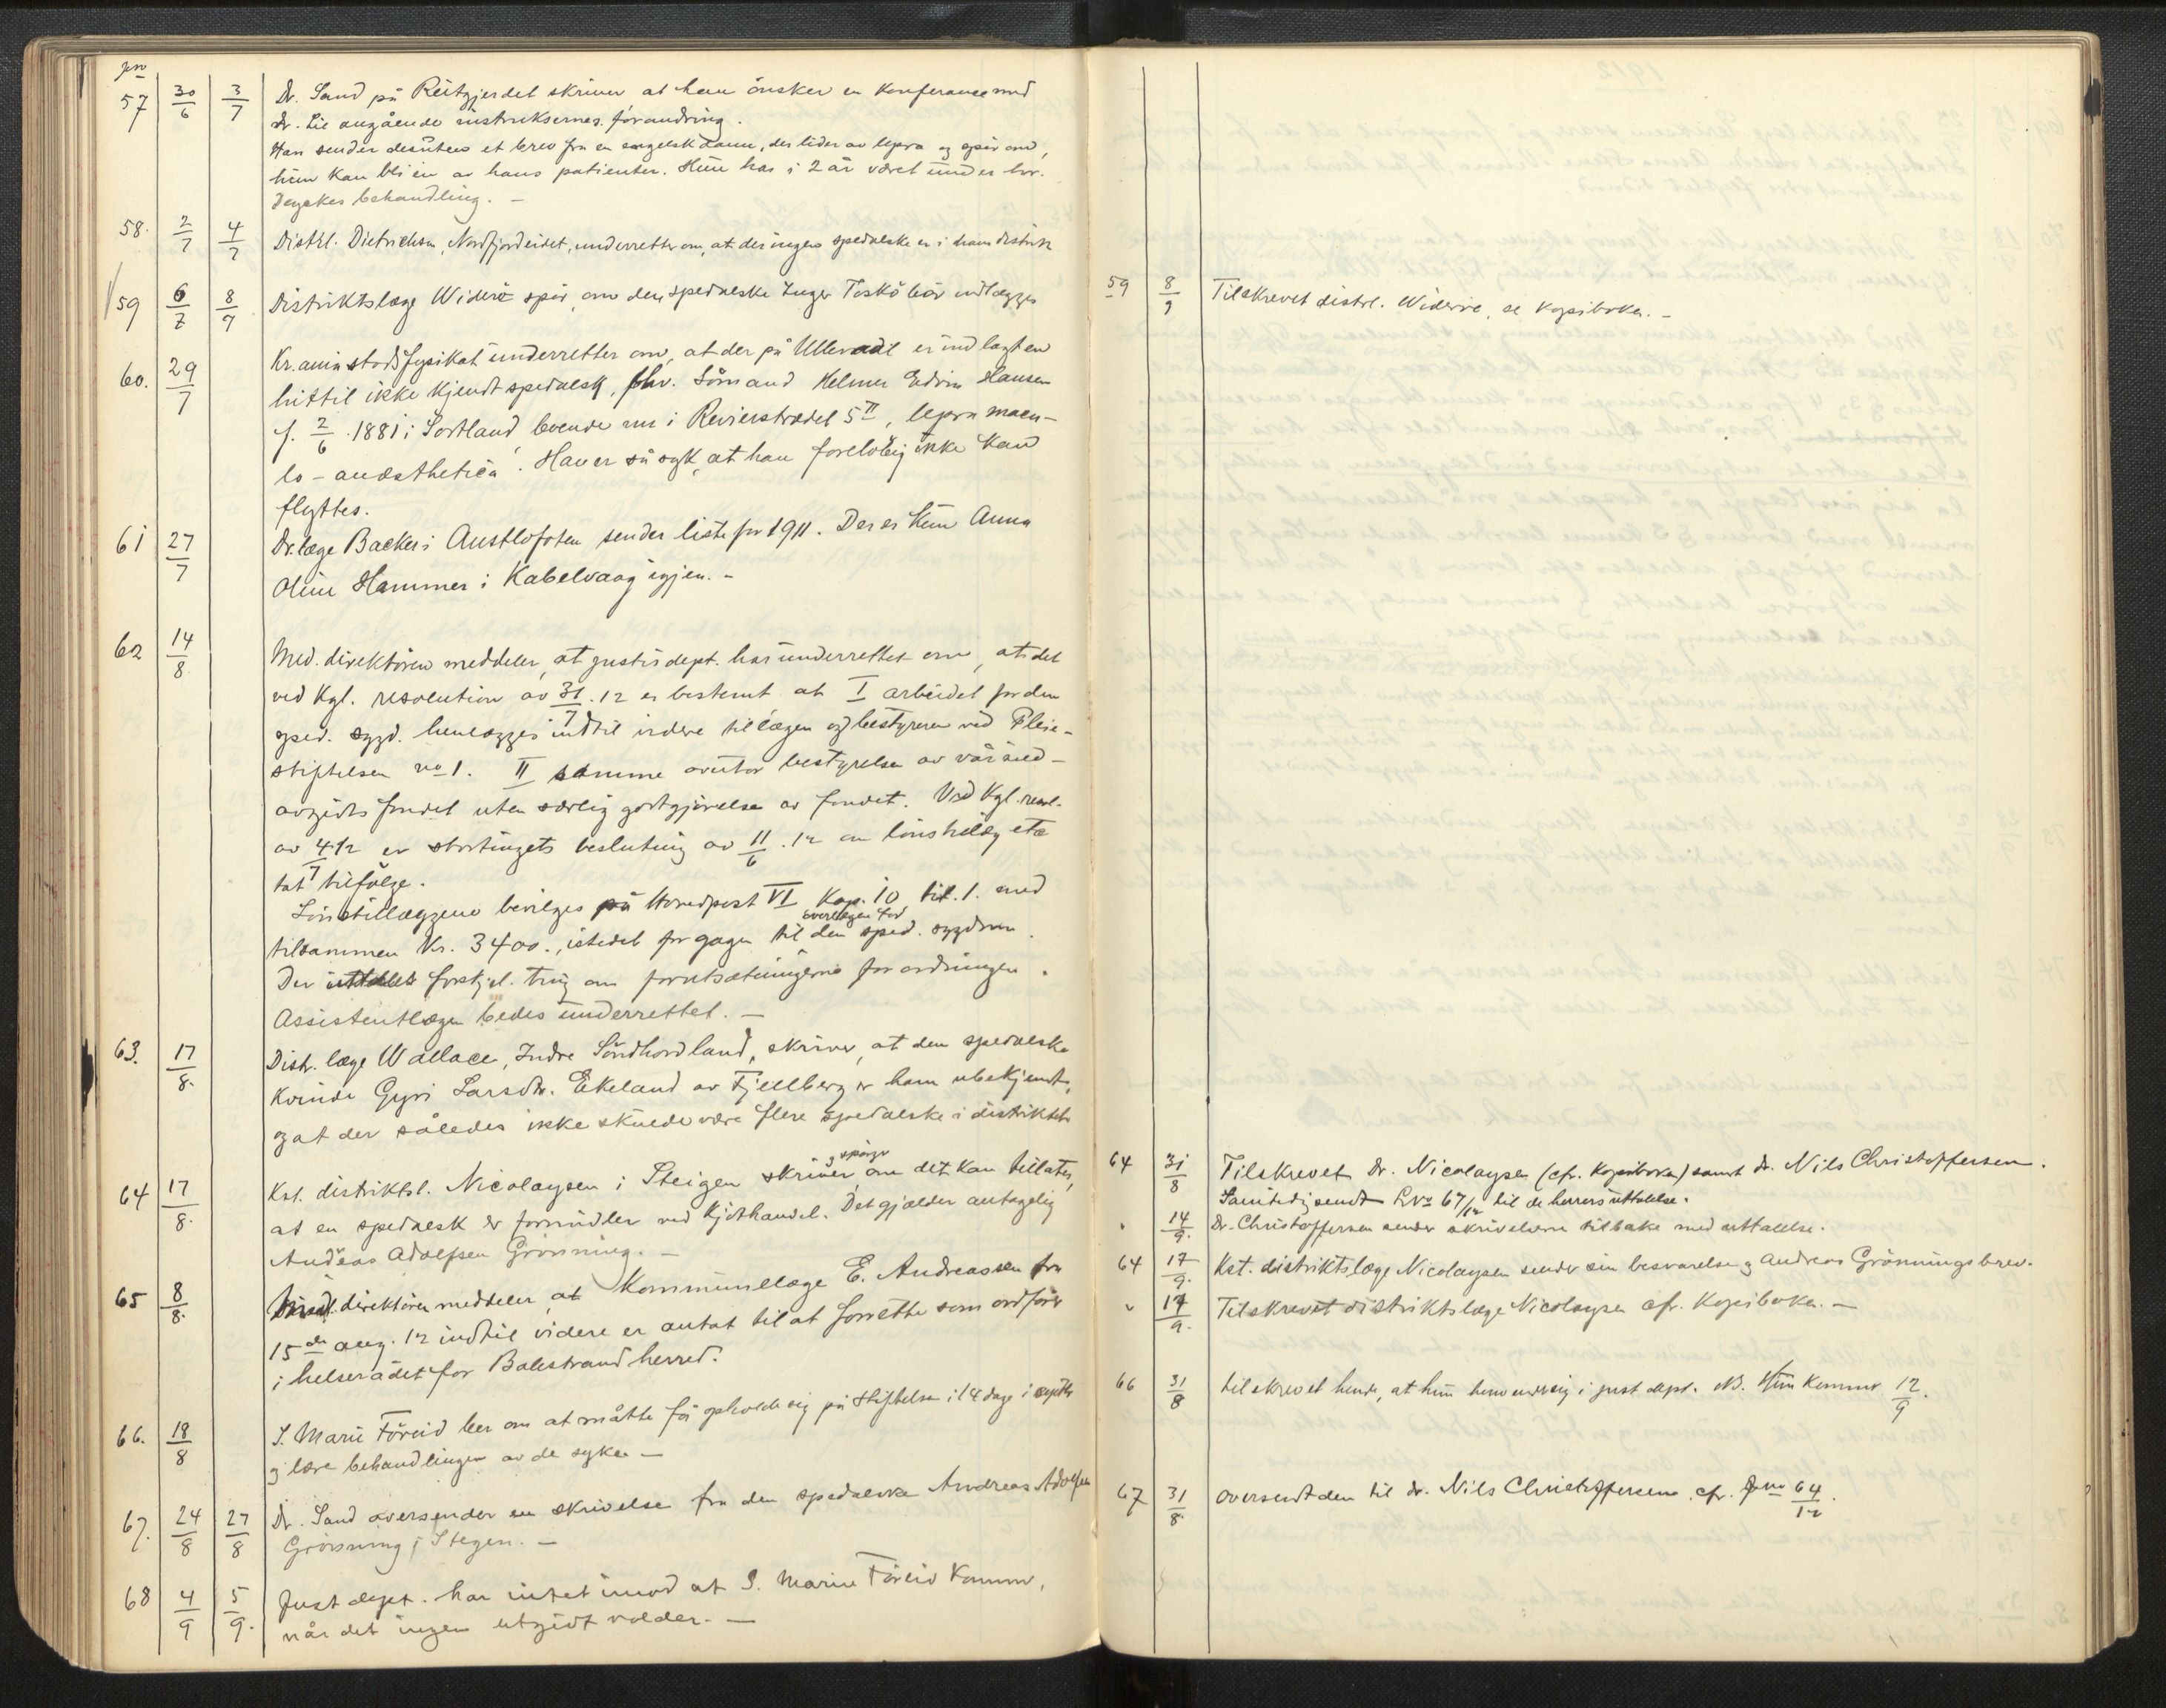 Jno
57 30/6 3/7 Dr. Sand på Reitgjerdet skriver at han önsker en konferanse med
dr. Lie angående instruksernes forandring.
Han sender desuten et brev fra en engelsk dame, der lider av lepra og spör om,
hun kan bli en av hans patienter. Hun har i 2 år været under dr.
Deyckes behandling. —
58. 2/7 4/7 Distrl. Dietrichson, Nordfjordeidet, underretter om, at der ingen spedalske er i hans distrikt
59 6/7 8/7 Distriktslæge Wideröe spör, om den spedalske Inger Toskö bör indlægges
60. 29/7 Kr.ania stadsfysikat underretter om, at der på Ullevaal er indlagt en
hittil ikke kjendt spedalsk, fhv. Sömand Helmer Edvin Hansen
f. 2/6 1881 i Sortland, boende nu i Revierstrædet 5 II, lepra macu-
lo-anæsthetica. Han er så syk, at han foreløbig ikke kan
flyttes.
61 27/7 Dr.læge Backer i Austlofoten sender liste for 1911. Der er kun Anna
Oline Hammer i Kabelvaag igjen. -
62 14/8 Med. direktören meddeler, at justisdept. har underrettet om, at det
ved kgl. resolution av 31/7.12 er bestemt at I arbeidet for den
sped. sygd. henlægges indtil videre til lægen og bestyreren ved Pleie-
stiftelsen no 1. II samme overtar bestyrelsen av
avgifts fondet uten særlig godtgjörelse av fondet. Ved kgl. resol.
av 4/7 12 er stortingets beslutning av 11/6.12 om lönstillæg etc
tat tilfölge.
Lönstillæggene bevilges på Hovedpost VI Kap. 10 tit. 1. med
tilsammen Kr. 3400., istedet for gagen til overlægen for den sped. sygdom.
Der uttales forskjel. ting om forutsætningerne for ordningen.
Assistentlægen bedes underrettet. —
63. 17/8. Distr. læge Wallace, Indre Söndhordland, skriver, at den spedalske
kvinde Gyri Larsdtr. Ekeland av Fjellberg er ham ubekjendt,
og at der således ikke skulde være flere spedalske i distriktet
64 17/8. Kst. distriktsl. Nicolaysen i Steigen skriver og spörger om det kan tillates,
at en spedalsk er formidler ved kjöthandel. Det gjælder antagelig
Andreas Adolfsen Grönning. —
65 8/8. Med. direktören meddeler at Kommunelæge E. Andreassen fra
15de aug. 12 indtil videre er antat til at forrette som ordförer
i helserådet for Balestrand herred.
66. 18/8 S. Marie Föreid ber om at måtte få opholde sig på stiftelsen i 14 dage i septbr
og lære behandlingen av de syke. —
67. 24/8 27/8 Dr. Sand oversender en skrivelse fra den spedalske Andreas Adolfsen
Grönning i Stegen. —
68 4/9 5/9. Just dept. har intet imod at S. Marie Föreid kommer,
når det ingen utgift volder. —
1912
59 8/9 Tilskrevet distrl. Wideröe, se kopiboken. -
64 31/8 Tilskrevet Dr. Nicolaysen (cfr. kopiboken) samt dr. Nils Christoffersen.
Samtidig sendt Jno 67/12 til de herrers uttalelse.
" 14/9. Dr. Christoffersen sender skrivelserne tilbake med uttalelse.
64 17/9. Kst. distriktslæge Nicolaysen sender sin besvarelse og Andreas Grönnings brev.
" 17/9. Tilskrevet distriktslæge Nicolaysen cfr. kopiboken. —
66 31/8 tilskrevet hende, at hun henvender sig i just dept. NB. Hun kommer 12/9.
67 31/8 oversendt den til dr. Nils Christoffersen, cfr. Jno 64/12.